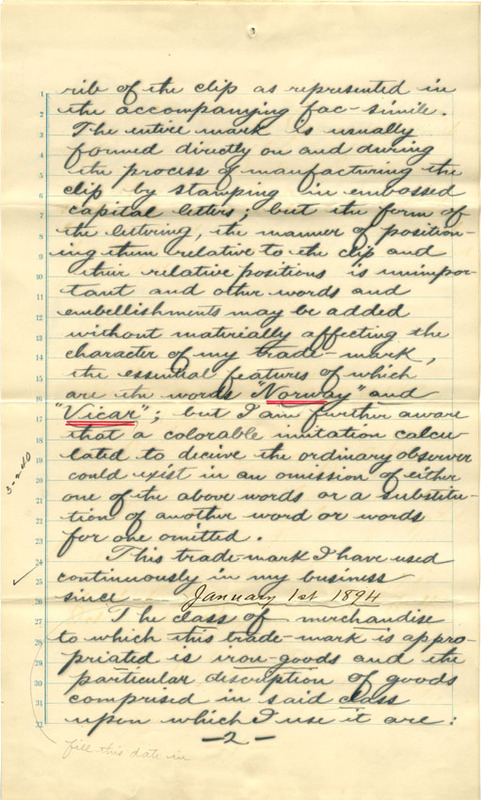 rib of the clip as represented in
the accompanying fac-simile.
The entire mark is usually
formed directly on and during
the process of manufacturing the
clip by stamping in embossed
capital letters; but the form of
the lettering, the manner of position-
ing them relative to the clip and
their relative positions is unimpor-
tant and other words and
embellishments may be added
without materially affecting the
character of my trade-mark,
the essential features of which
are the words "Norway" and
"Vicar"; but I am further aware
that a colorable imitation calcu-
lated to deceive the ordinary observer
could exist in an omission of either
one of the above words or a substitu-
tion of another word or words
for one omitted.
This trade-mark I have used
continuously in my business
since January 1st 1894
The class of merchandise
to which this trade-mark is appro-
priated is iron-goods and the
particular description of goods
comprised in said class
upon which I use it are:
-2-
fill this date in